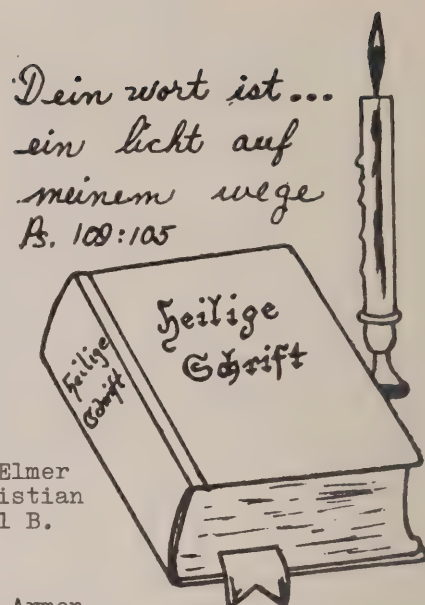 Dein wort ist...
ein licht auf
meinem wege
Ps. 109:105
Heilige
Schrift
Heilige
Schrift
Elmer
istian
l B.
Armon